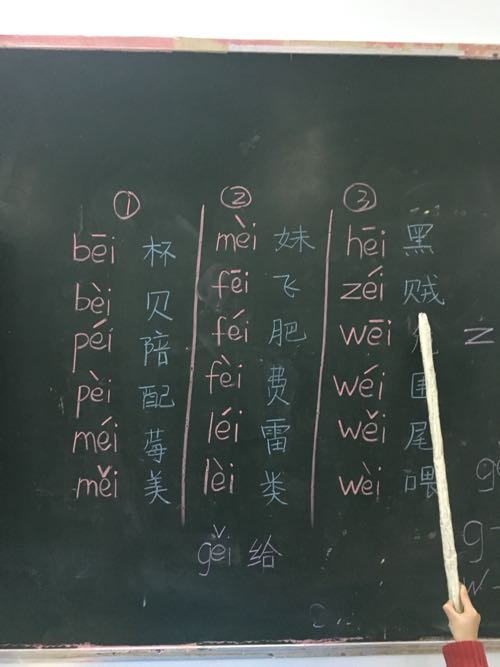 ① ② ③
bēi 杯 mèi 妹 hēi 黑
bèi 贝 fēi 飞 zéi 贼
péi 陪 féi 肥 wēi
pèi 配 fèi 费 wéi 围
méi 莓 léi 雷 wěi 尾
měi 美 lèi 类 wèi 喂
gěi 给
z
g
g
w